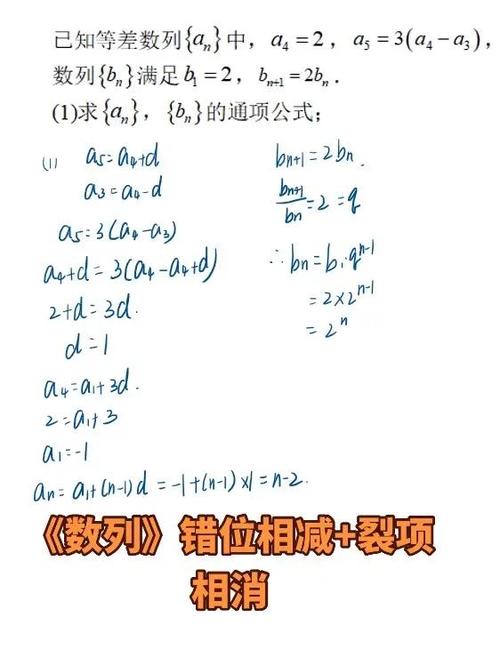 已知等差数列{aₙ}中，a₄=2，a₅=3(a₄−a₃)，
数列{bₙ}满足b₁=2，bₙ₊₁=2bₙ．
(1)求{aₙ}，{bₙ}的通项公式；
(1) a₅=a₄+d
a₃=a₄-d
a₅=3(a₄-a₃)
a₄+d=3(a₄-a₄+d)
2+d=3d.
d=1
a₄=a₁+3d.
2=a₁+3
a₁=-1
aₙ=a₁+(n-1)d=-1+(n-1)×1=n-2.
bₙ₊₁=2bₙ.
bₙ₊₁/bₙ=2=q
∴bₙ=b₁·qⁿ⁻¹
=2×2ⁿ⁻¹
=2ⁿ
《数列》错位相减+裂项
相消